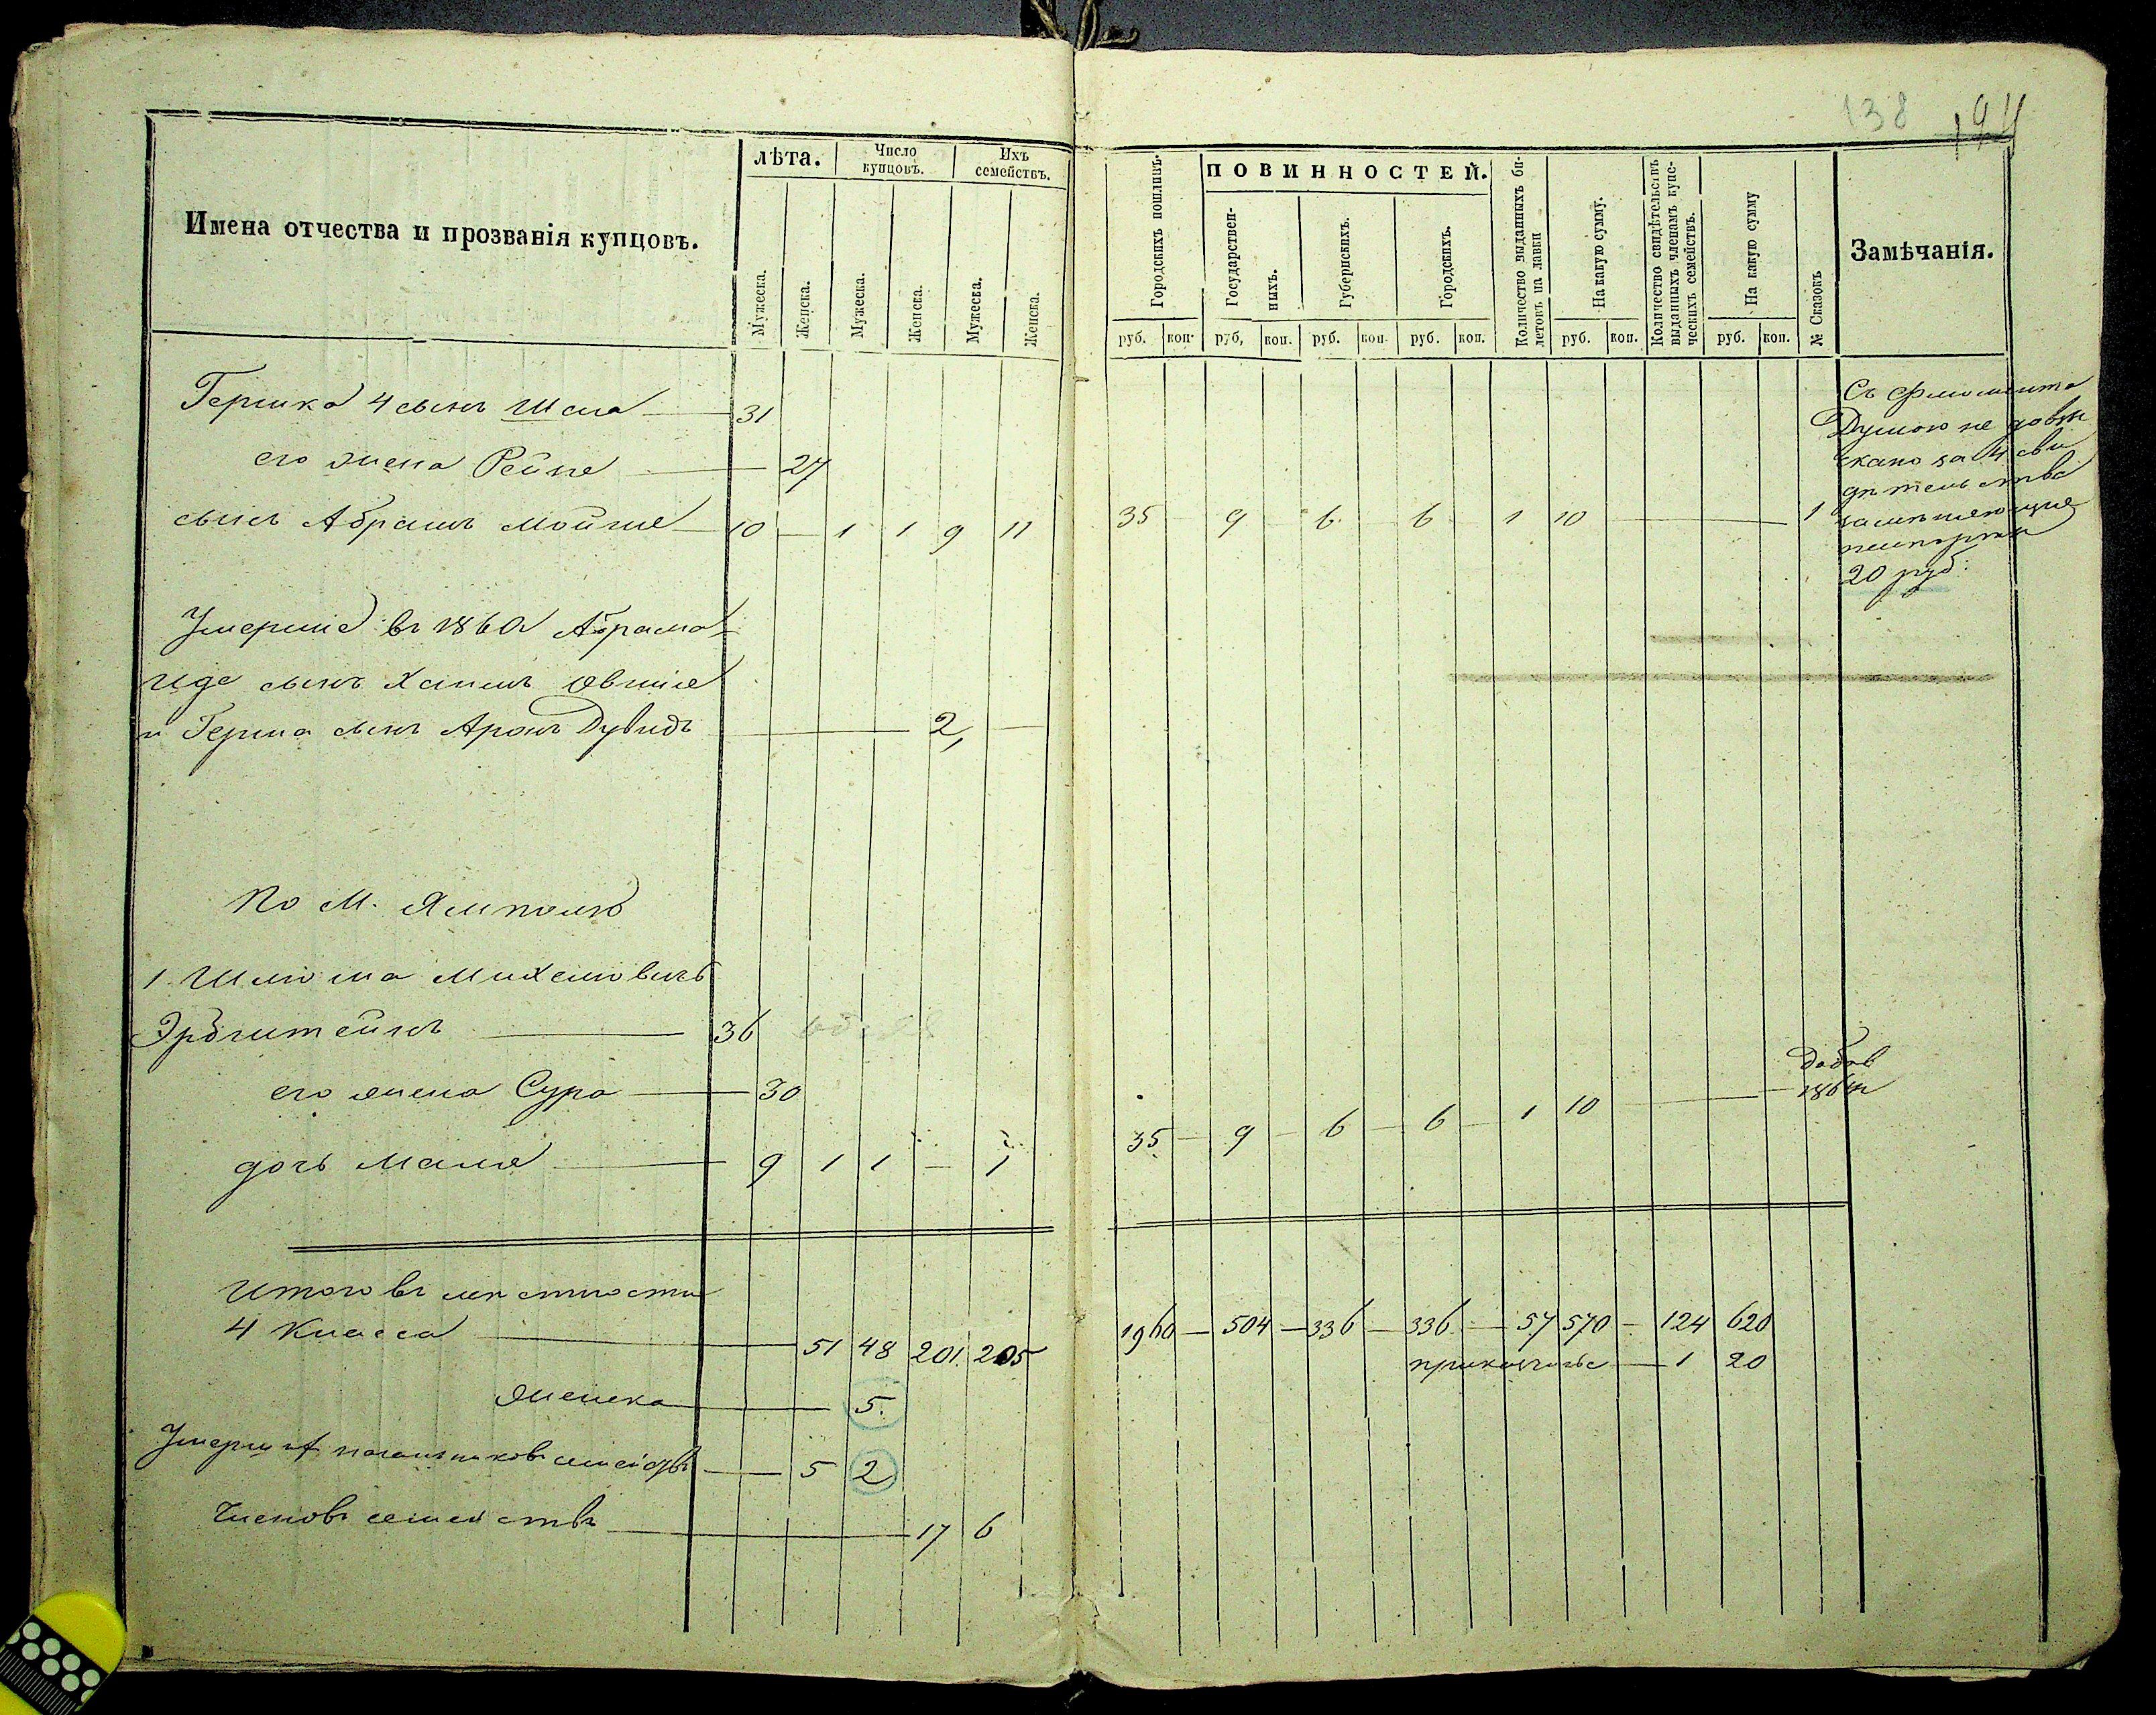 138 194
Имена отчества и прозванія купцовъ.
лѣта.
Число купцовъ.
Ихъ семействъ.
Мужеска.
Женска.
Мужеска.
Женска.
Мужеска.
Женска.
Городскихъ пошлинъ.
ПОВИННОСТЕЙ.
Государственныхъ.
Губернскихъ.
Городскихъ.
Количество выданныхъ билетовъ на лавки
На какую сумму.
Количество свидѣтельствъ выданныхъ членамъ купеческихъ семействъ.
На какую сумму
№ Сказокъ
Замѣчанія.
руб. коп. руб. коп. руб. коп. руб. коп. руб. коп. руб. коп.
Гершка 4 сынъ 31
его жена 27
сынъ Абрамъ Мойше 10 — 1 1 9 11 35 9 6 6 1 10 — 1
Думою не
за 4 сви
дѣтельства
20 руб.
Умершіе въ 1860 Абрама
сынъ Хаимъ
и Герша сынъ Аронъ Дувидъ — 2,
По М. Ямполю
1. Шлиома
36
его жена Сура — 30
дочь — 9 1 1 — 1 35 — 9 — 6 — 6 — 1 10 —
Добав
Итого въ мѣстности
4 класса — 51 48 201. 205 1960 — 504 — 336 — 336 — 57 570 — 124 620
— 1 20
женска — 5.
семейств — 5 2
Членовъ семействъ — 17 6